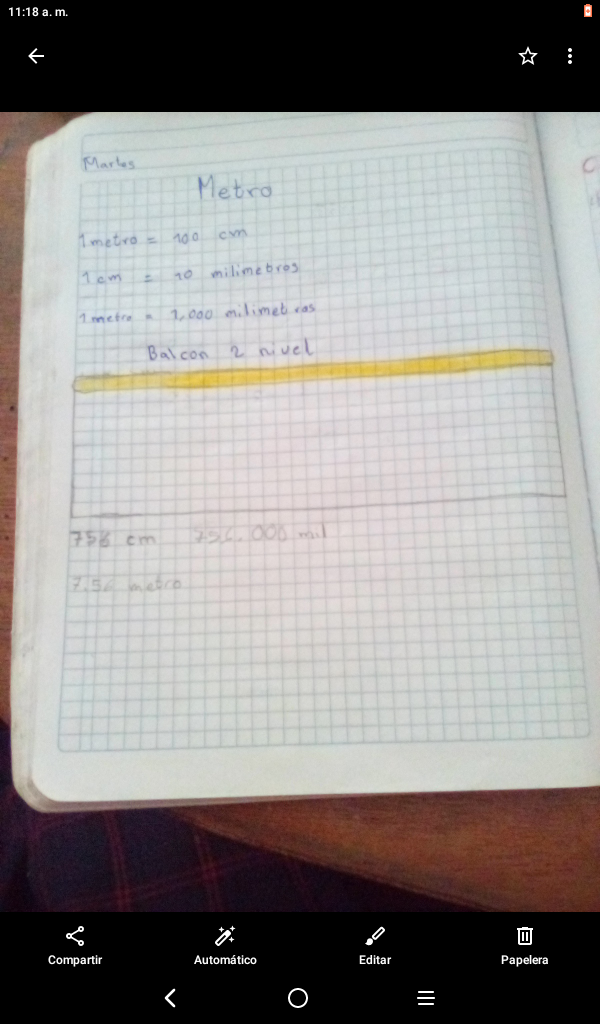 11:18 a. m.
Martes
Metro
1 metro = 100 cm
1 cm = 10 milimetros
1 metro = 1,000 milimetros
Balcon 2 nivel
756 cm 756.000 mil
7.56 metro
Compartir
Automático
Editar
Papelera